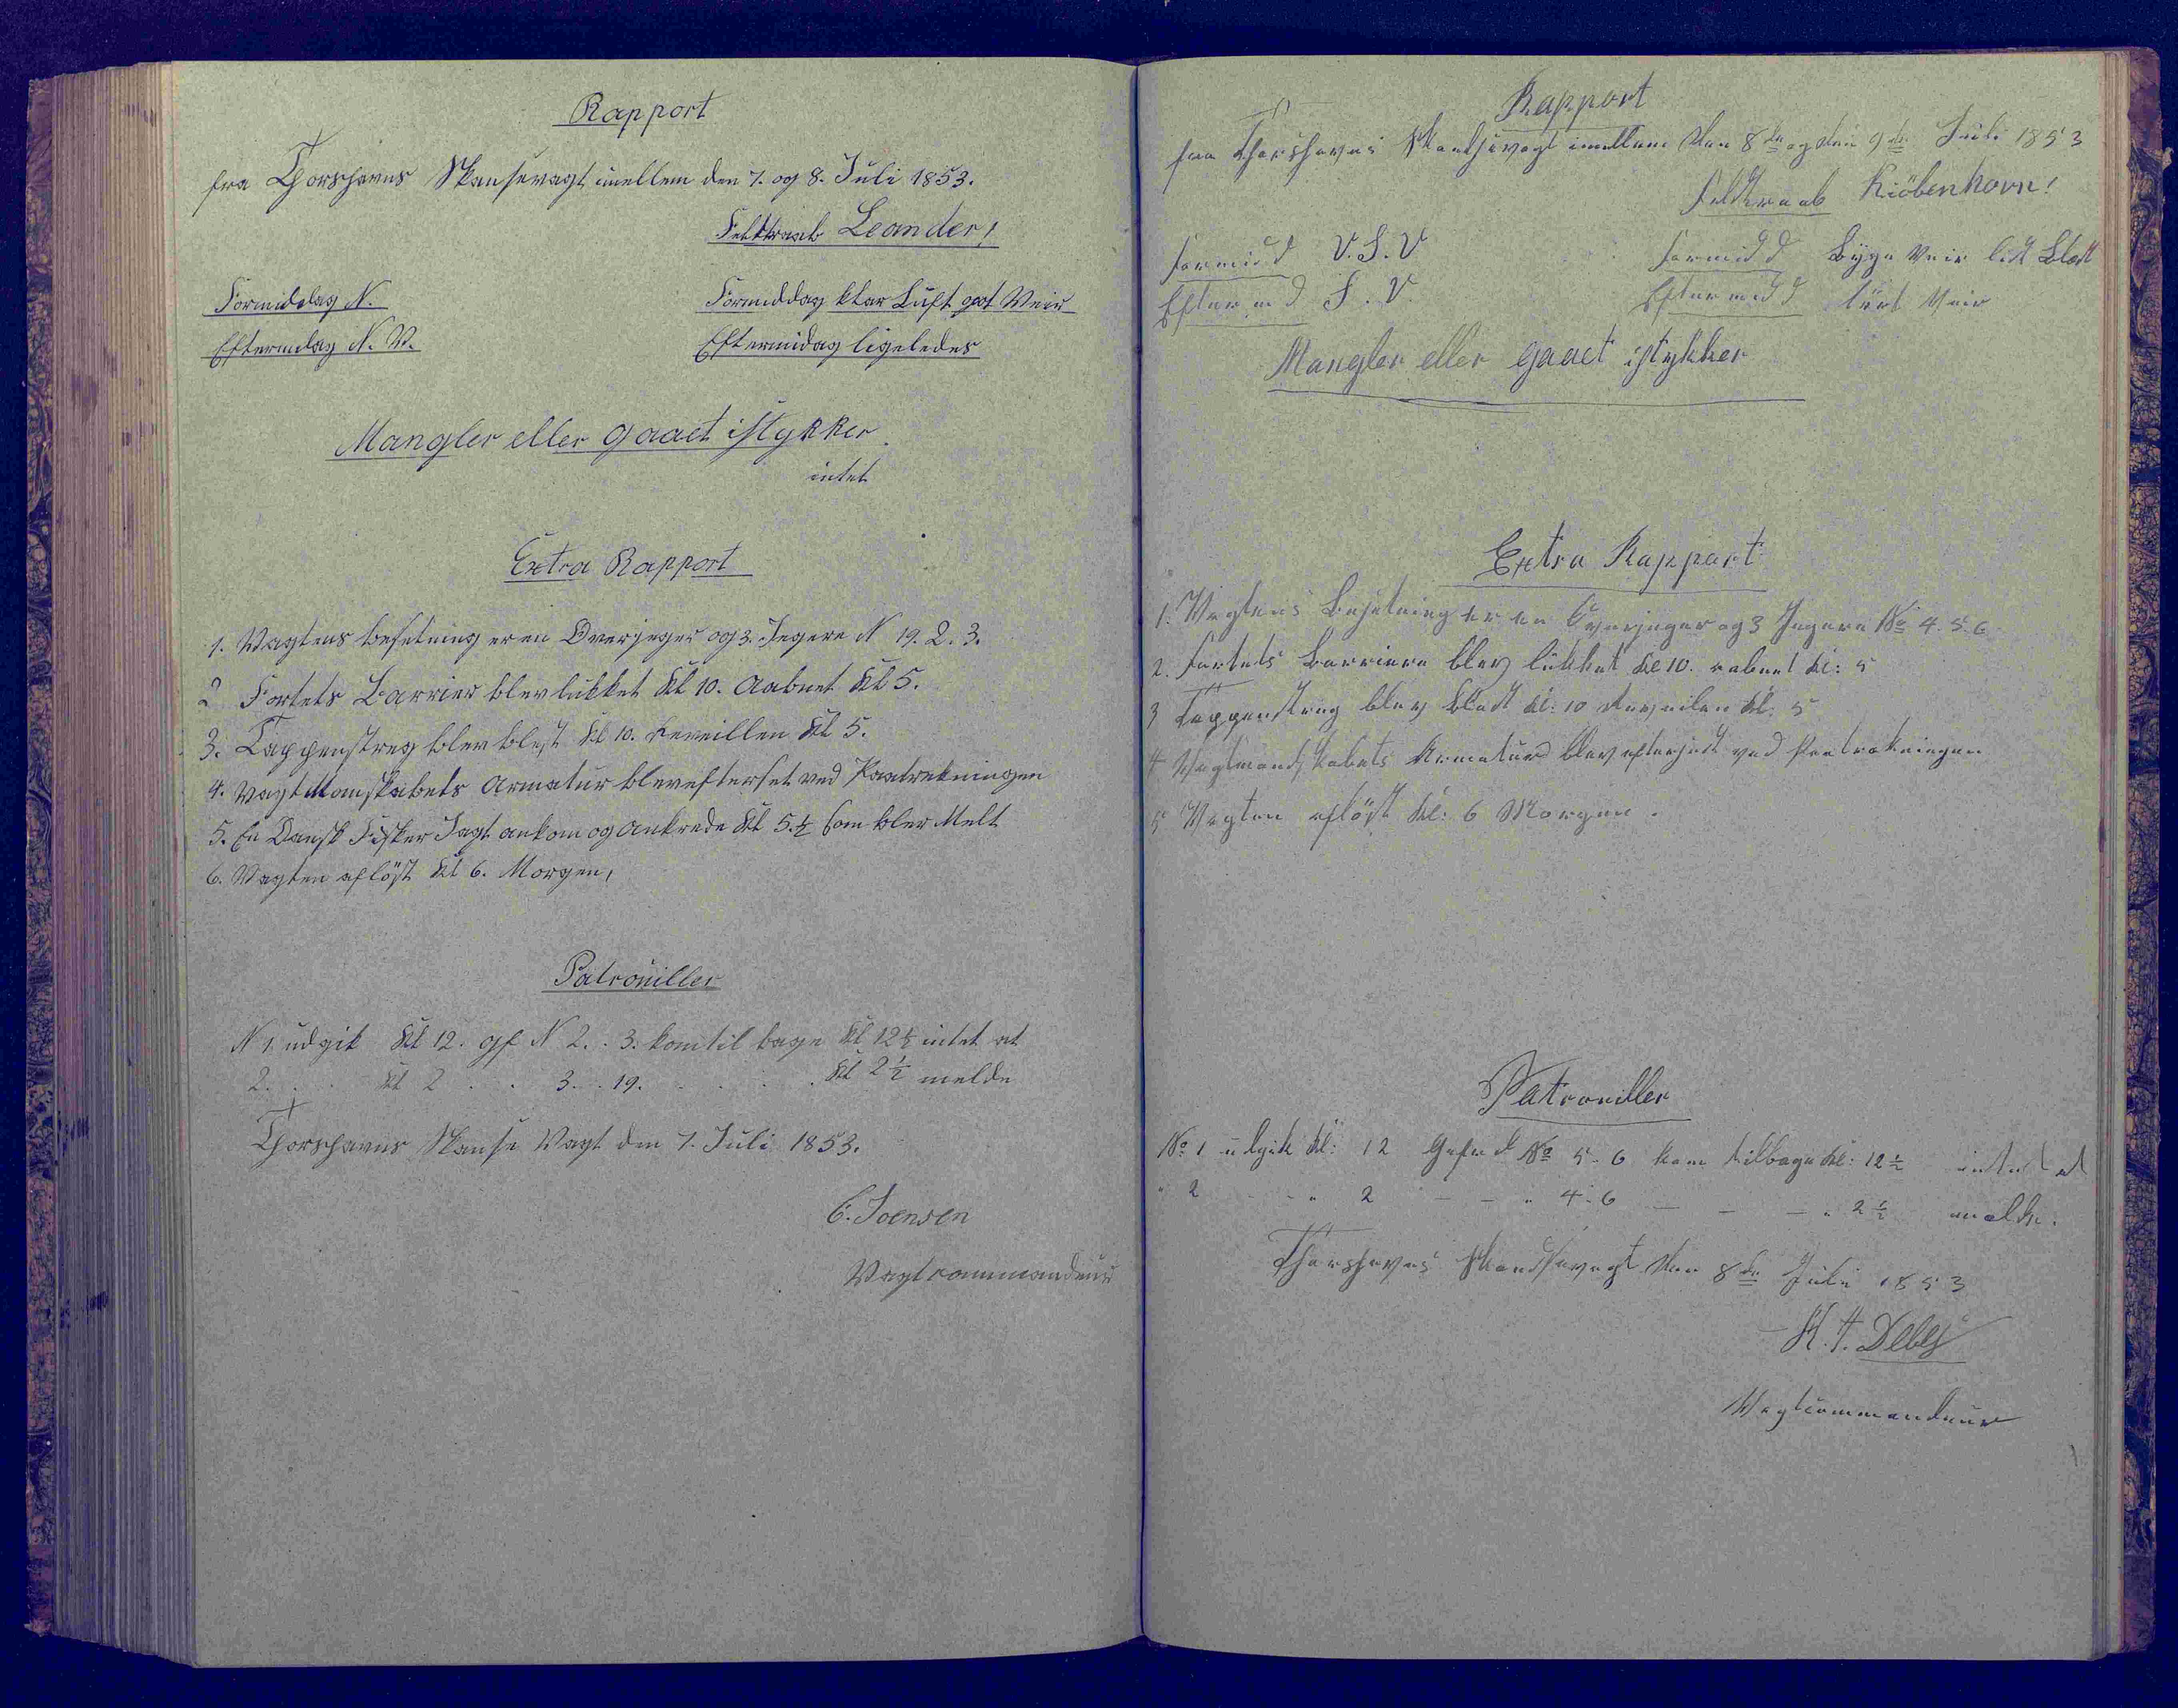 Rapport
fra Thorshavns Skansevagt imellem den 7. og 8. Juli 1853.
Feltraab Leander!
Formiddag N.
Formiddag klar Luft got Veir
Eftermidag N. V.
Eftermidag ligeledes
Mangler eller gaaet istykker.
intet
Extra Rapport
1. Vagtens besetning er en Overjeger og 3. Jegere N 19. 2. 3.
2 Fortets Barrier blev lukket Kl 10. Aabnet Kl 5.
3. Tappenstreg blev blest Kl 10. Reveillen Kl 5.
4. Vagtmamskabets Armatur blev efterset ved Paatrekningen
5. En Dansk Fisker Jagt ankom og ankrede Kl 5.½ som blev Melt
6. Vagten aflöst Kl 6. Morgen,
Patrouiller
N 1. udgik Kl 12. gf N 2. . 3. kom til bage Kl 12½ intet at
2. . . Kl 2 . . 3. . 19. . . . . Kl 2½ melde
Thorshavns Skanse Vagt den 7. Juli 1853.
C. Joensen
Vagtcommandeur
Rapport
fra Thorshavns Skandsevagt imellem den 8de og den 9de Juli 1853
Feldtraab Kiöbenhavn!
Formidd V.S.V
Formidd Byge Veir lidt Blæst
Efterm d S. V.
Eftermidd tört Veir
Mangler eller gaaet istykker
Extra Rappart
1. Vagtens Besetning er en Overjeger og 3 Jegere No 4. 5. 6
2. Fortets Barriere blev lukket Kl 10. aabnet kl: 5
3 Tappenstreg blev blæst kl: 10 Reveilen kl: 5
4 Vagtmandskabets Armatur blev efterseet ved Paatrækningen
5 Vagten aflöst kl: 6 Morgen.
Patrouiller
No 1 udgik kl: 12 Gefrd No 5-6 kom tilbage kl: 12½ intet at
" 2 - - " 2 - - " 4-6 - - - " 2½ melde.
Thorshavns Skandsevagt den 8de Juli 1853
H. H. Debes
Vagtcommandeur